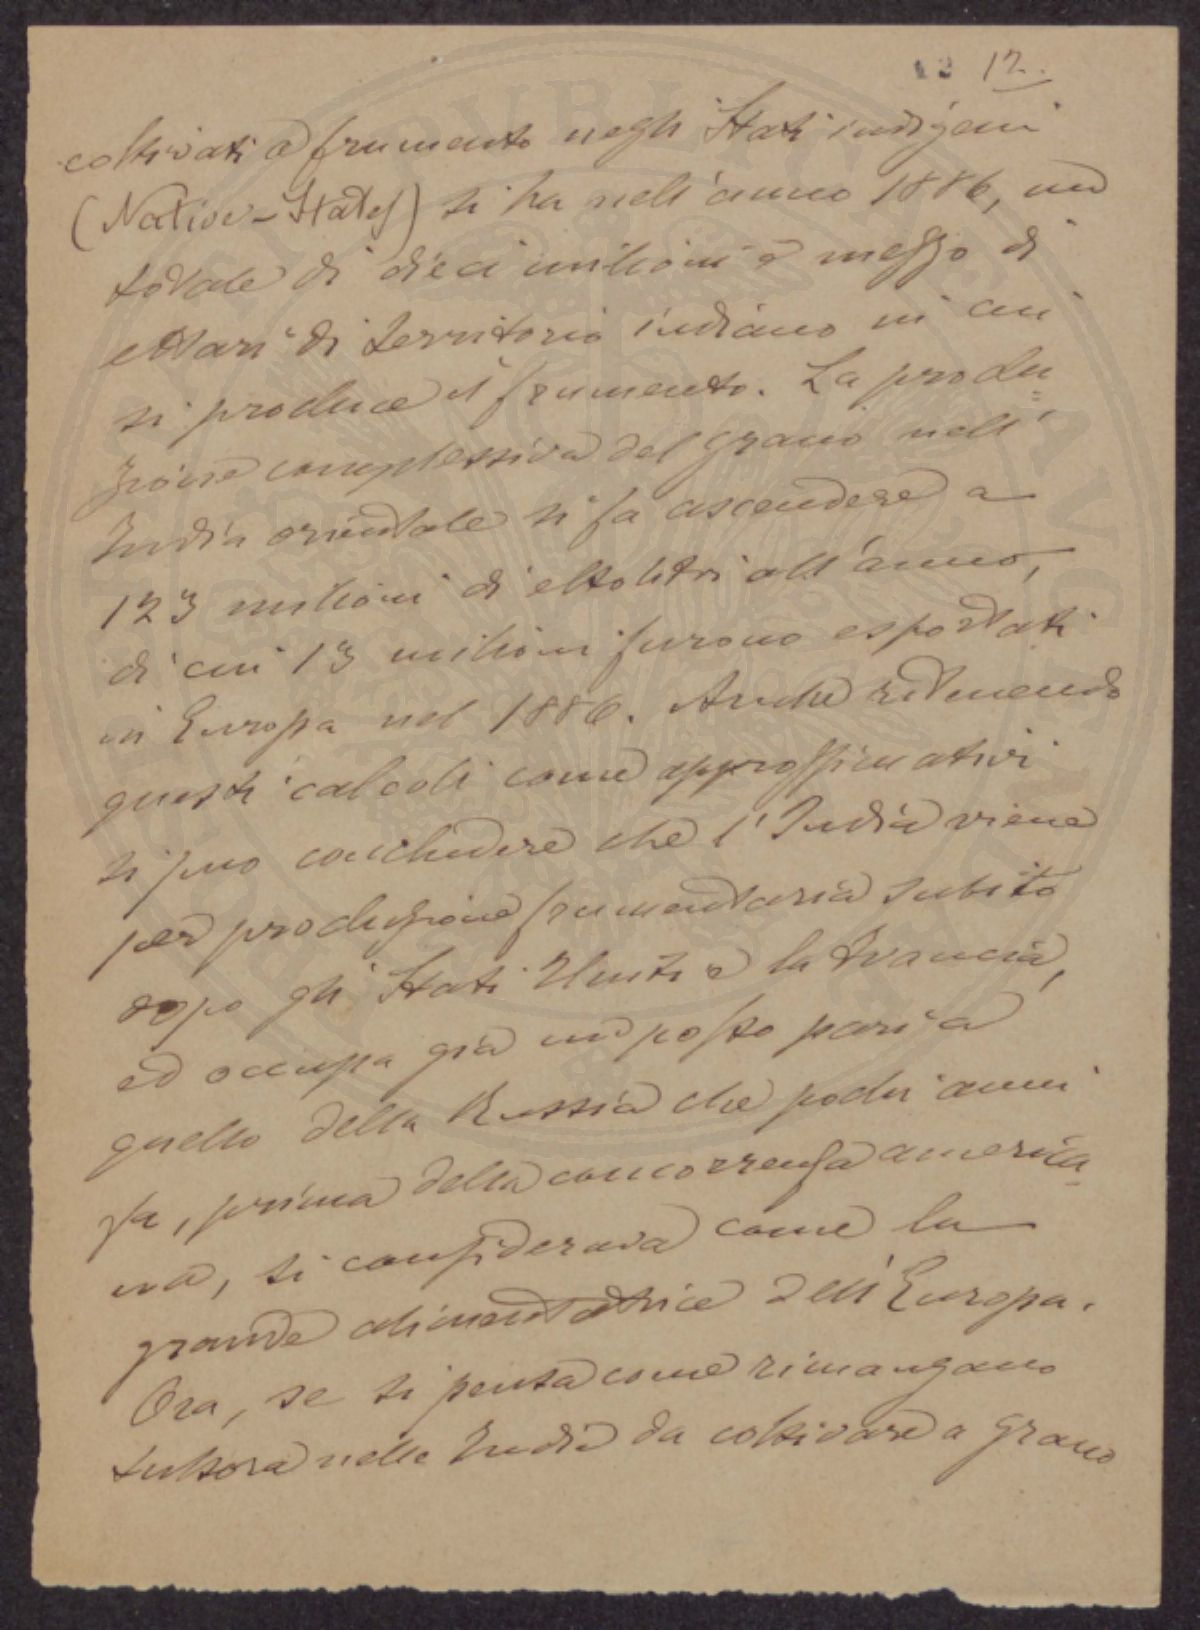 12 12.
coltivati a frumento negli Stati indigeni
(Native-States) si ha nell'anno 1886, un
totale di dieci milioni e mezzo di
ettari di territorio indiano in cui
si produce il frumento. La produ=
zione complessiva del grano nell'
India orientale si fa ascendere a
123 milioni di ettolitri all'anno,
di cui 13 milioni furono esportati
in Europa nel 1886. Anche ritenendo
questi calcoli come approssimativi
si può conchiudere che l'India viene
per produzione frumentaria subito
dopo gli Stati Uniti e la Francia,
ed occupa già un posto pari a
quello della Russia che pochi anni
fa, prima della concorrenza america-
na, si considerava come la
grande alimentatrice dell'Europa.
Ora, se si pensa come rimangano
tuttora nelle Indie da coltivare a grano